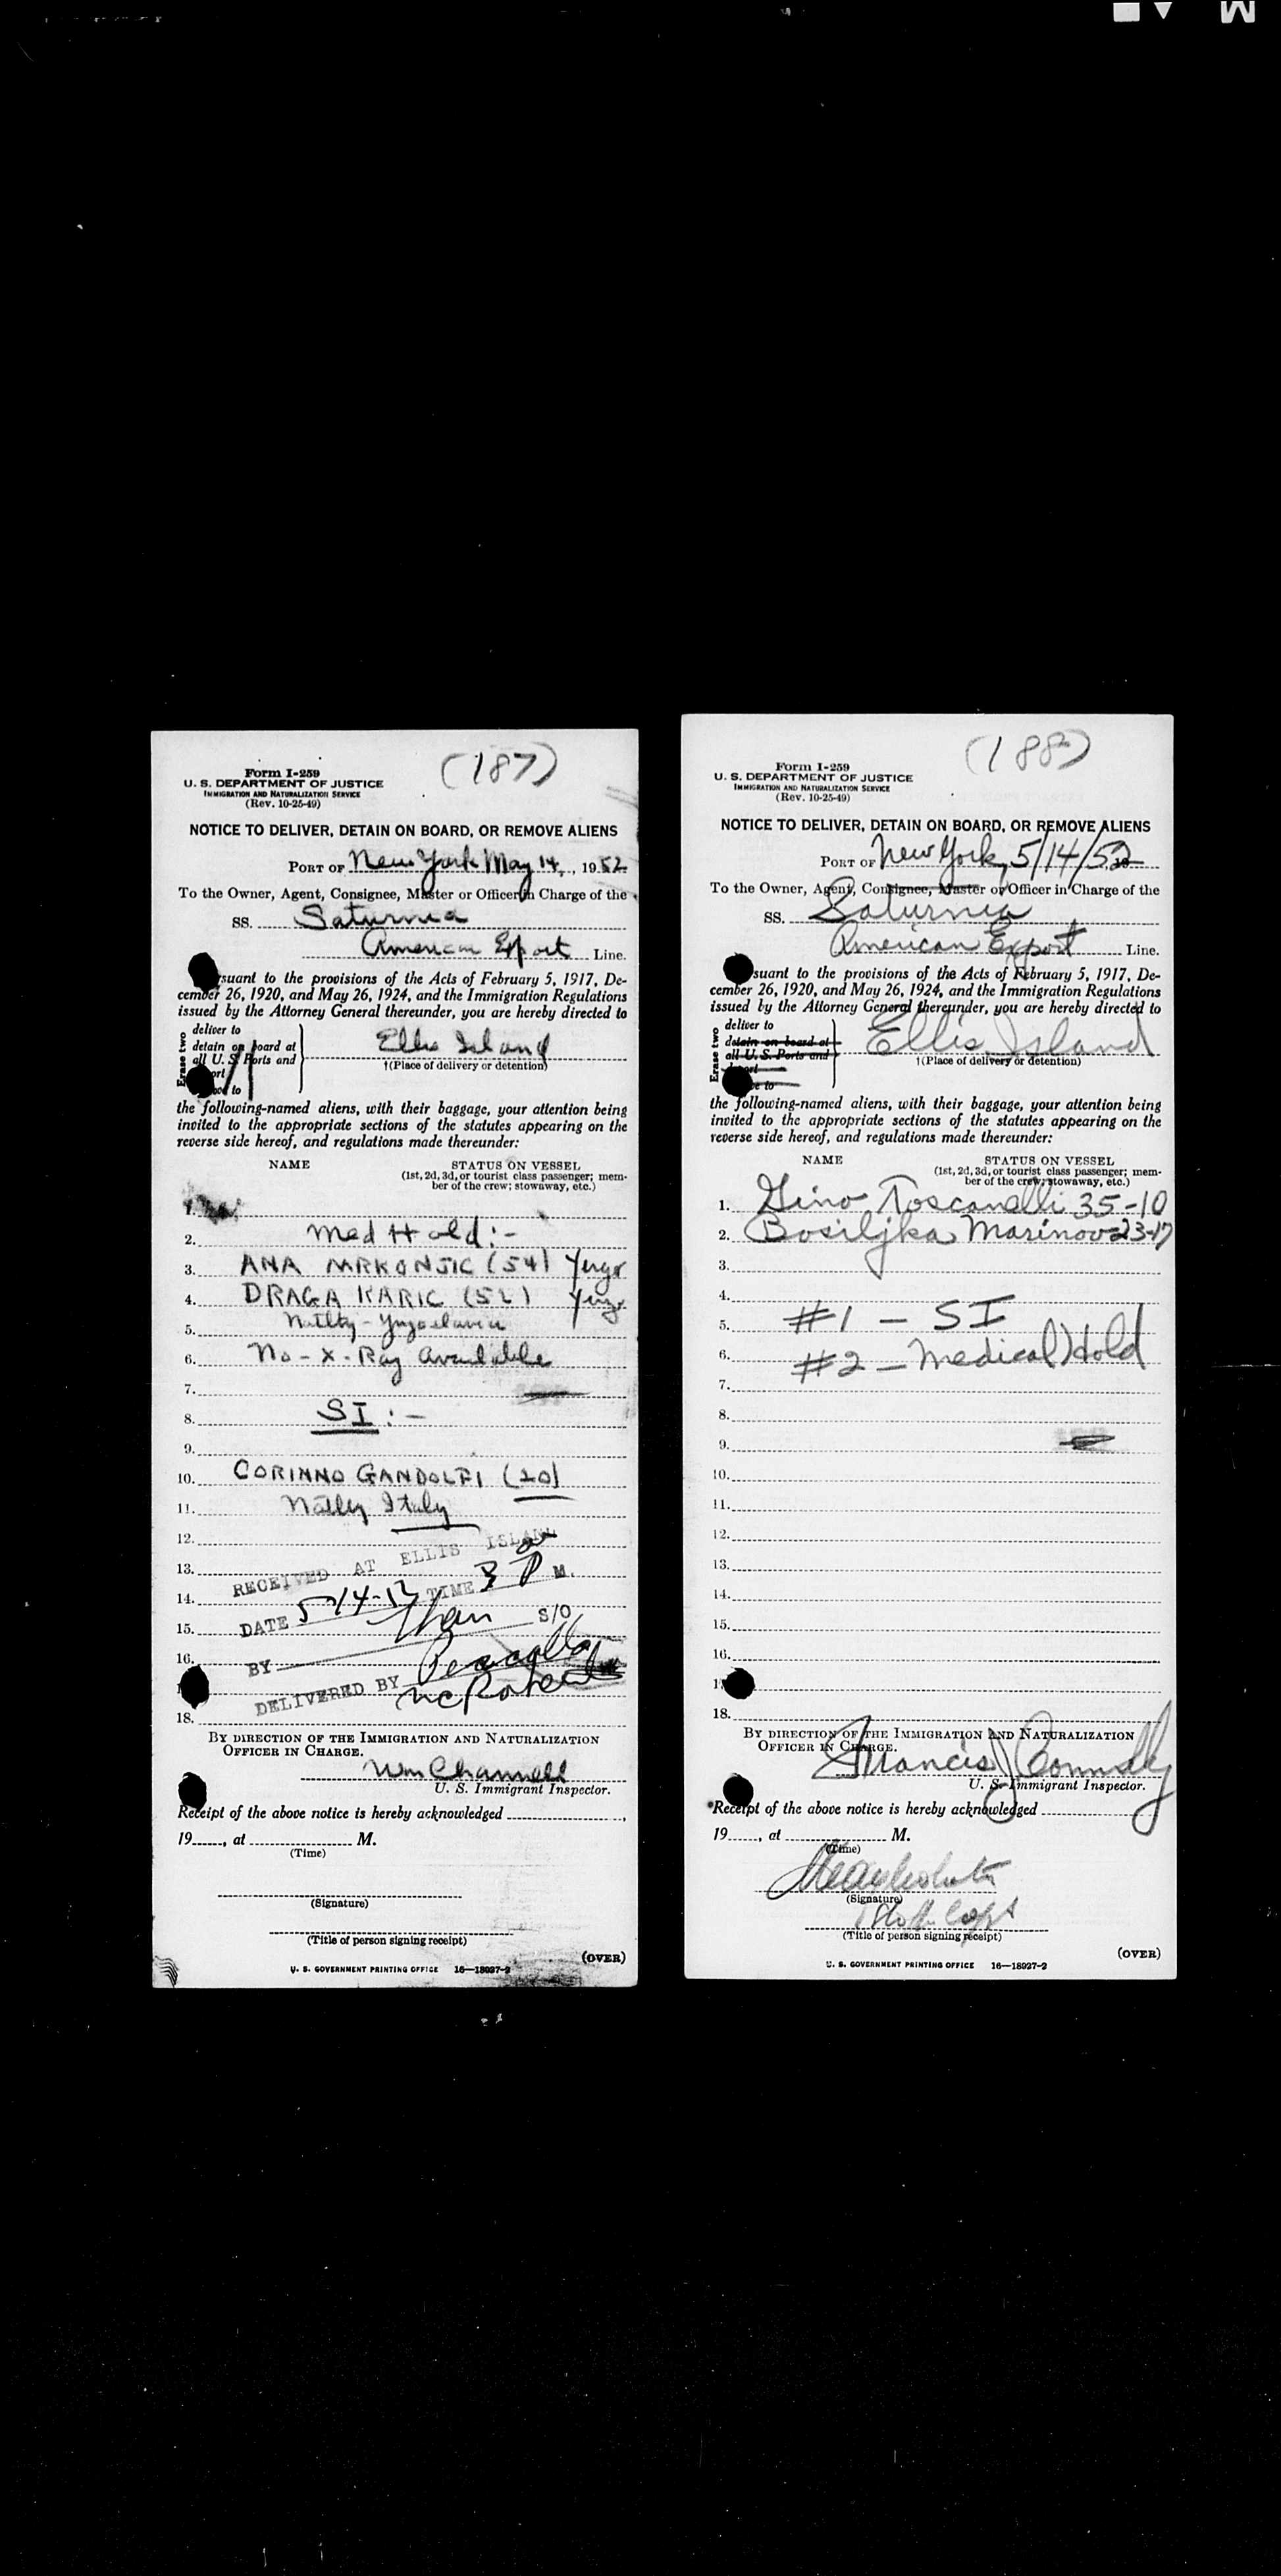 (187)
Form I-259
U. S. DEPARTMENT OF JUSTICE
IMMIGRATION AND NATURALIZATION SERVICE
(Rev. 10-25-49)
NOTICE TO DELIVER, DETAIN ON BOARD, OR REMOVE ALIENS
PORT OF New York May 14, 1952
To the Owner, Agent, Consignee, Master or Officer in Charge of the
SS. Saturnia
American Export Line.
suant to the provisions of the Acts of February 5, 1917, De-
cember 26, 1920, and May 26, 1924, and the Immigration Regulations
issued by the Attorney General thereunder, you are hereby directed to
Erase two
deliver to
detain on board at
all U. S. Ports and
ort
to
Ellis Island
†(Place of delivery or detention)
the following-named aliens, with their baggage, your attention being
invited to the appropriate sections of the statutes appearing on the
reverse side hereof, and regulations made thereunder:
NAME STATUS ON VESSEL
(1st, 2d, 3d, or tourist class passenger; mem-
ber of the crew; stowaway, etc.)
1.
2. Med Hold:-
3. ANA MRKONSIC (54) Yugo
4. DRAGA KARIC (52) Yugo
5. Natlty - Yugoslavia
6. No - X - Ray Available
7.
8. SI:-
9.
10. CORINNO GANDOLFI (20)
11. Natlty Italy
12.
13. RECEIVED AT ELLIS ISLAND
14. DATE 5-14-52 TIME 3 P M.
15. S/O
16. BY
DELIVERED BY
18.
BY DIRECTION OF THE IMMIGRATION AND NATURALIZATION
OFFICER IN CHARGE.
Wm Channell
U. S. Immigrant Inspector.
Receipt of the above notice is hereby acknowledged
19, at M.
(Time)
(Signature)
(Title of person signing receipt)
(OVER)
U. S. GOVERNMENT PRINTING OFFICE 16—18027-2
(188)
Form I-259
U. S. DEPARTMENT OF JUSTICE
IMMIGRATION AND NATURALIZATION SERVICE
(Rev. 10-25-49)
NOTICE TO DELIVER, DETAIN ON BOARD, OR REMOVE ALIENS
PORT OF New York, 5/14/52
To the Owner, Agent, Consignee, Master or Officer in Charge of the
SS. Saturnia
American Export Line.
suant to the provisions of the Acts of February 5, 1917, De-
cember 26, 1920, and May 26, 1924, and the Immigration Regulations
issued by the Attorney General thereunder, you are hereby directed to
Erase two
deliver to
detain on board at
all U. S. Ports and
to
Ellis Island
†(Place of delivery or detention)
the following-named aliens, with their baggage, your attention being
invited to the appropriate sections of the statutes appearing on the
reverse side hereof, and regulations made thereunder:
NAME STATUS ON VESSEL
(1st, 2d, 3d, or tourist class passenger; mem-
ber of the crew; stowaway, etc.)
1. Gino Toscanelli 35-10
2. Bosiljka Marinov 23-17
3.
4.
5. #1 - SI
6. #2 - Medical Hold
7.
8.
9.
10.
11.
12.
13.
14.
15.
16.
18.
BY DIRECTION OF THE IMMIGRATION AND NATURALIZATION
OFFICER IN CHARGE.
Francis J Connolly
U. S. Immigrant Inspector.
Receipt of the above notice is hereby acknowledged
19, at M.
(Time)
(Signature)
(Title of person signing receipt)
(OVER)
U. S. GOVERNMENT PRINTING OFFICE 16—18027-2